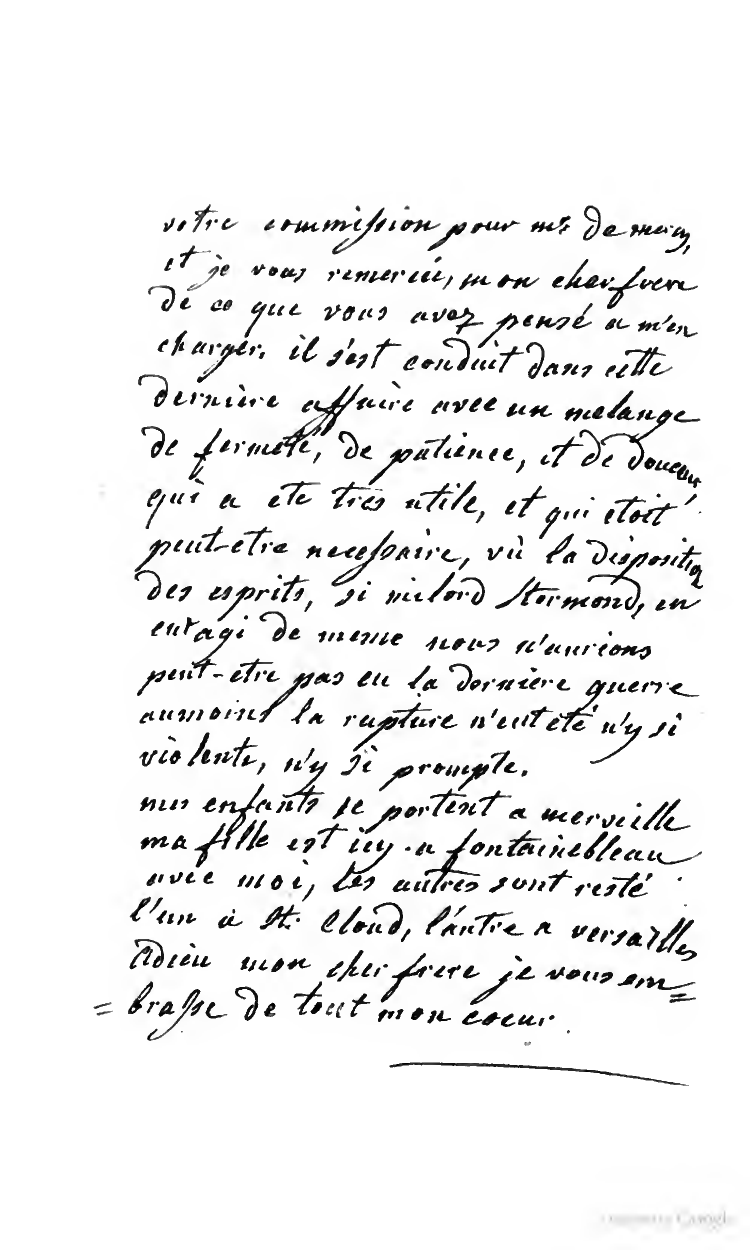 votre commission pour mr de mercy,
et je vous remercie, mon cher frere
de ce que vous avez pensé a m'en
charger. il s'est conduit dans cette
dernière affaire avec un melange
de fermeté, de patience, et de douceur,
qui a ete tres utile, et qui etoit
peut-etre necessaire, vû la disposition
des esprits, si milord Stormond, en
eut agi de meme nous n'aurions
peut-etre pas eu la dernière guerre
aumoins la rupture n'eut été n'y si
violente, n'y si prompte.
mes enfants se portent a merveille
ma fille est icy a fontainebleau
avec moi, les autres sont resté
l'un a St. Cloud, l'autre a versailles
Adieu mon cher frere je vous em=
=brasse de tout mon coeur.
Google